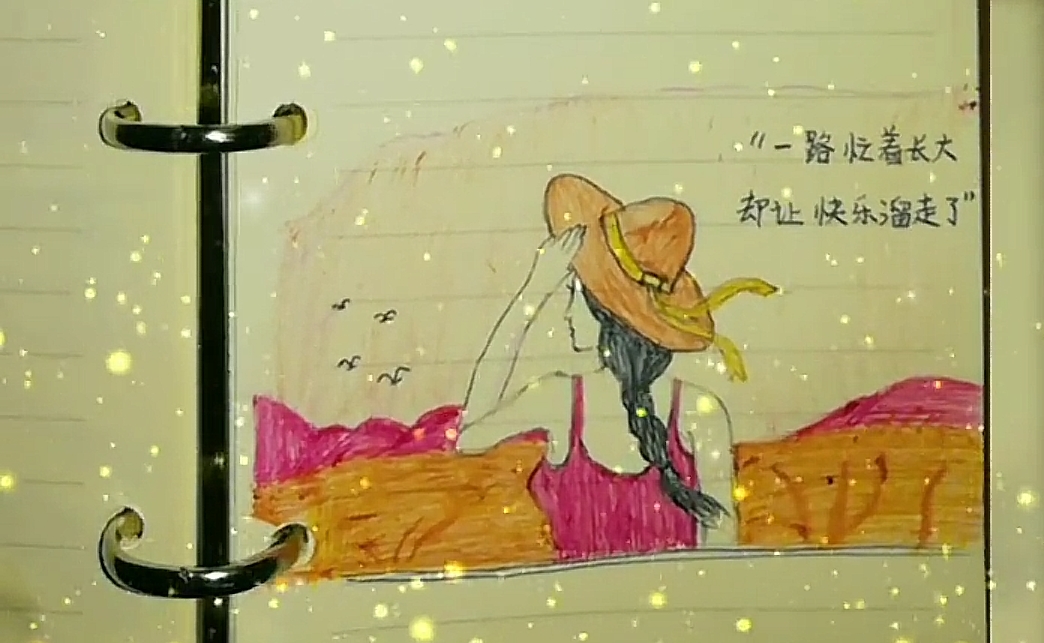 “一路忙着长大
却让快乐溜走了”